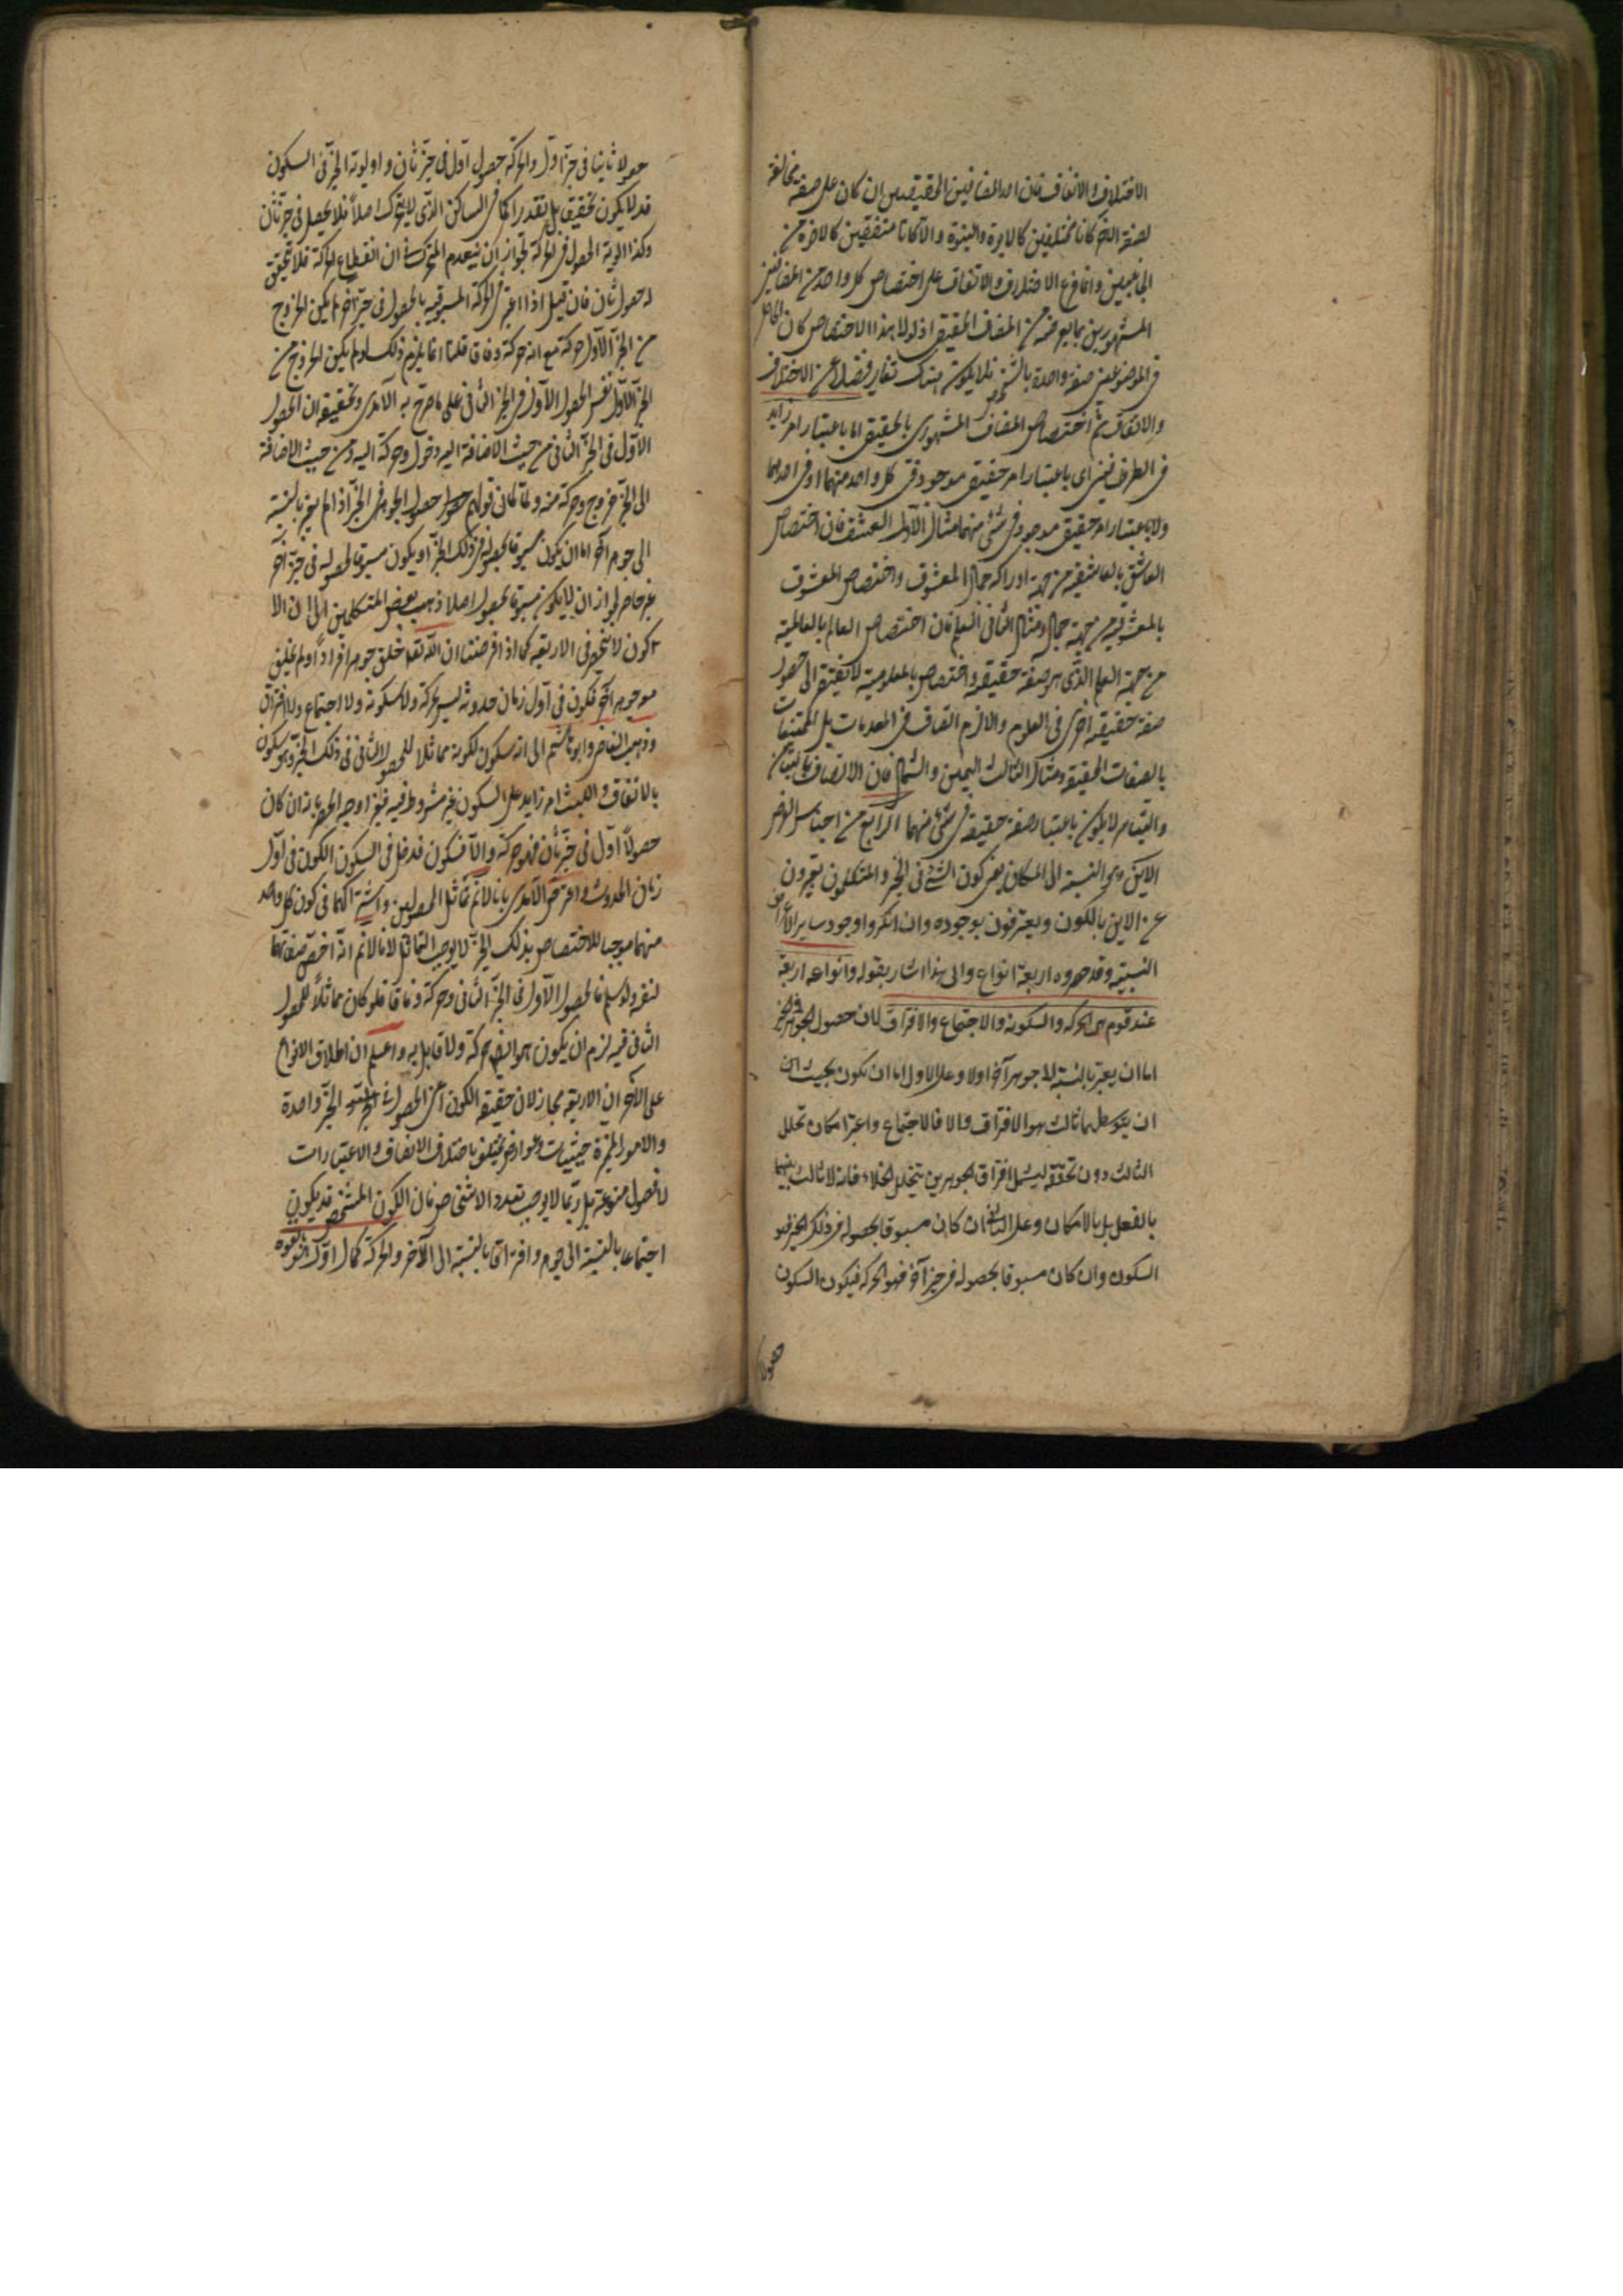 الاختلاف والاتفاق فان احد المضافين الحقيقيين ان كان على صفة مخالفة
لصفة الآخر كانا مختلفين كالابوة والبنوة والا كانا متفقين كالاخوة من
الجانبين وانما فرع الاختلاف والاتفاق على اختصاص كل واحد من المضافين
المشهورين بما يعرضه من المضاف الحقيقي اذ لولا هذا الاختصاص كان الحاصل
في الموضوعين صفة واحدة بالشخص فلا يكون هناك تغاير فضلا عن الاختلاف
والاتفاق ثم اختصاص المضاف المشهوري بالحقيقي اما باعتبار امر زايد
في الطرفين اي باعتبار امر حقيقي موجود في كل واحد منهما او في احدهما
ولا باعتبار امر حقيقي موجود في شئ منهما مثال الاول العشق فان اختصاص
العاشق بالعاشقية من جهة ادراكه جمال المعشوق واختصاص المعشوق
بالمعشوقية من جهة جماله ومثال الثاني العلم فان اختصاص العالم بالعالمية
من جهة العلم الذي هو صفة حقيقية واختصاص بالمعلومية لا يفتقر الى حصول
صفة حقيقية اخرى في المعلوم والا لزم اتصاف المعدومات بل الممتنعات
بالصفات الحقيقية ومثال الثالث اليمين والشمال فان الاتصاف بالتيامن
والتياسر لا يكون باعتبار صفة حقيقية في شئ منهما الرابع من اجناس العرض
الاين وهو النسبة الى المكان يعني كون الشئ في الحيز والمتكلمون يعبرون
عن الاين بالكون ويعترفون بوجوده وان انكروا وجود ساير الاعراض
النسبية وقد حصروه اربعة انواع والى هذا اشار بقوله وانواعه اربعة
عند قوم هي الحركة والسكون والاجتماع والافتراق لان حصول الجوهر في الحيز
اما ان يعتبر بالنسبة الى جوهر آخر اولا وعلى الاول اما ان يكون بحيث امكن
ان يتوسطهما ثالث فهو الافتراق والا فالاجتماع واعتبر امكان تخلل
الثالث دون تحققه ليشمل افتراق الجوهرين بتخلل الخلاء فانه لا ثالث بينهما
بالفعل بل بالامكان وعلى الثاني ان كان مسبوقا بحصوله في ذلك الحيز فهو
السكون وان كان مسبوقا بحصوله في حيز آخر فهو الحركة فيكون السكون
حصولا
حصولا ثانيا في حيز اول والحركة حصول اول في حيز ثان واولوية الحيز في السكون
قد لا يكون تحقيقا بل تقديرا كما في الساكن الذي لا يتحرك اصلا فلا يحصل في حيز ثان
وكذا اولية الحصول في الحركة لجواز ان ينعدم المتحرك في آن انقطاع الحركة فلا يتحقق
له حصول ثان فان قيل اذا اعتبر في الحركة المسبوقية بالحصول في حيز آخر لم يكن الخروج
من الحيز الاول حركة مع انه حركة وفاقا قلنا انما يلزم ذلك لو لم يكن الخروج من
الحيز الاول نفس الحصول الاول في الحيز الثاني على ما صرح به الآمدي وتحقيقه ان الحصول
الاول في الحيز الثاني من حيث الاضافة اليه دخول وحركة اليه ومن حيث الاضافة
الى الحيز خروج وحركة منه ولما كان قولهم حصول الجوهر في الحيز اذا لم يعتبر بالنسبة
الى جوهر آخر اما ان يكون مسبوقا بحصوله في ذلك الحيز او يكون مسبوقا بحصوله في حيز آخر
غير حاصر لجواز ان لا يكون مسبوقا بحصول اصلا ذهب بعض المتكلمين الى ان الا
كون لا تنحصر في الاربعة كما اذا فرضنا ان الله تعالى خلق جوهرا فردا ولم يخلق
معه جوهر آخر فكونه في اول زمان حدوثه ليس بحركة ولا سكون ولا اجتماع ولا افتراق
وذهب القاضي وابو هاشم الى انه سكون لكونه مماثلا للحصول الثاني في ذلك الحيز وهو سكون
بالاتفاق واللبث امر زايد على السكون غير مشروط فيه فيلزم اوجه الحصر بانه ان كان
حصولا اول في حيز ثان فهو حركة والا فسكون فدخل في السكون الكون في اول
زمان الحدوث واعترض الآمدي بانا لا نم تماثل الحصولين واشتراكهما في كون كل واحد
منهما موجبا للاختصاص بذلك الحيز لا يوجب التماثل لانا لا نم انه اخص صفاتهما
لنفسه ولو سلم فالحصول الاول في الحيز الثاني حركة وفاقا فلو كان مماثلا للحصول
الثاني فيه لزم ان يكون هو ايضا حركة ولا قايل به واعلم ان اطلاق الانواع
على الاكوان الاربعة مجاز لان حقيقة الكون اعني الحصول في الحيز واحدة
والامور المميزة حيثيات وعوارض تختلف باختلاف الاضافات والاعتبارات
لا فصول منوعة بل ربما لا يوجب تعدد الاشخاص فان الكون المشخص قد يكون
اجتماعا بالنسبة الى جوهر وافتراقا بالنسبة الى الآخر والحركة كمال اول لما بالقوة